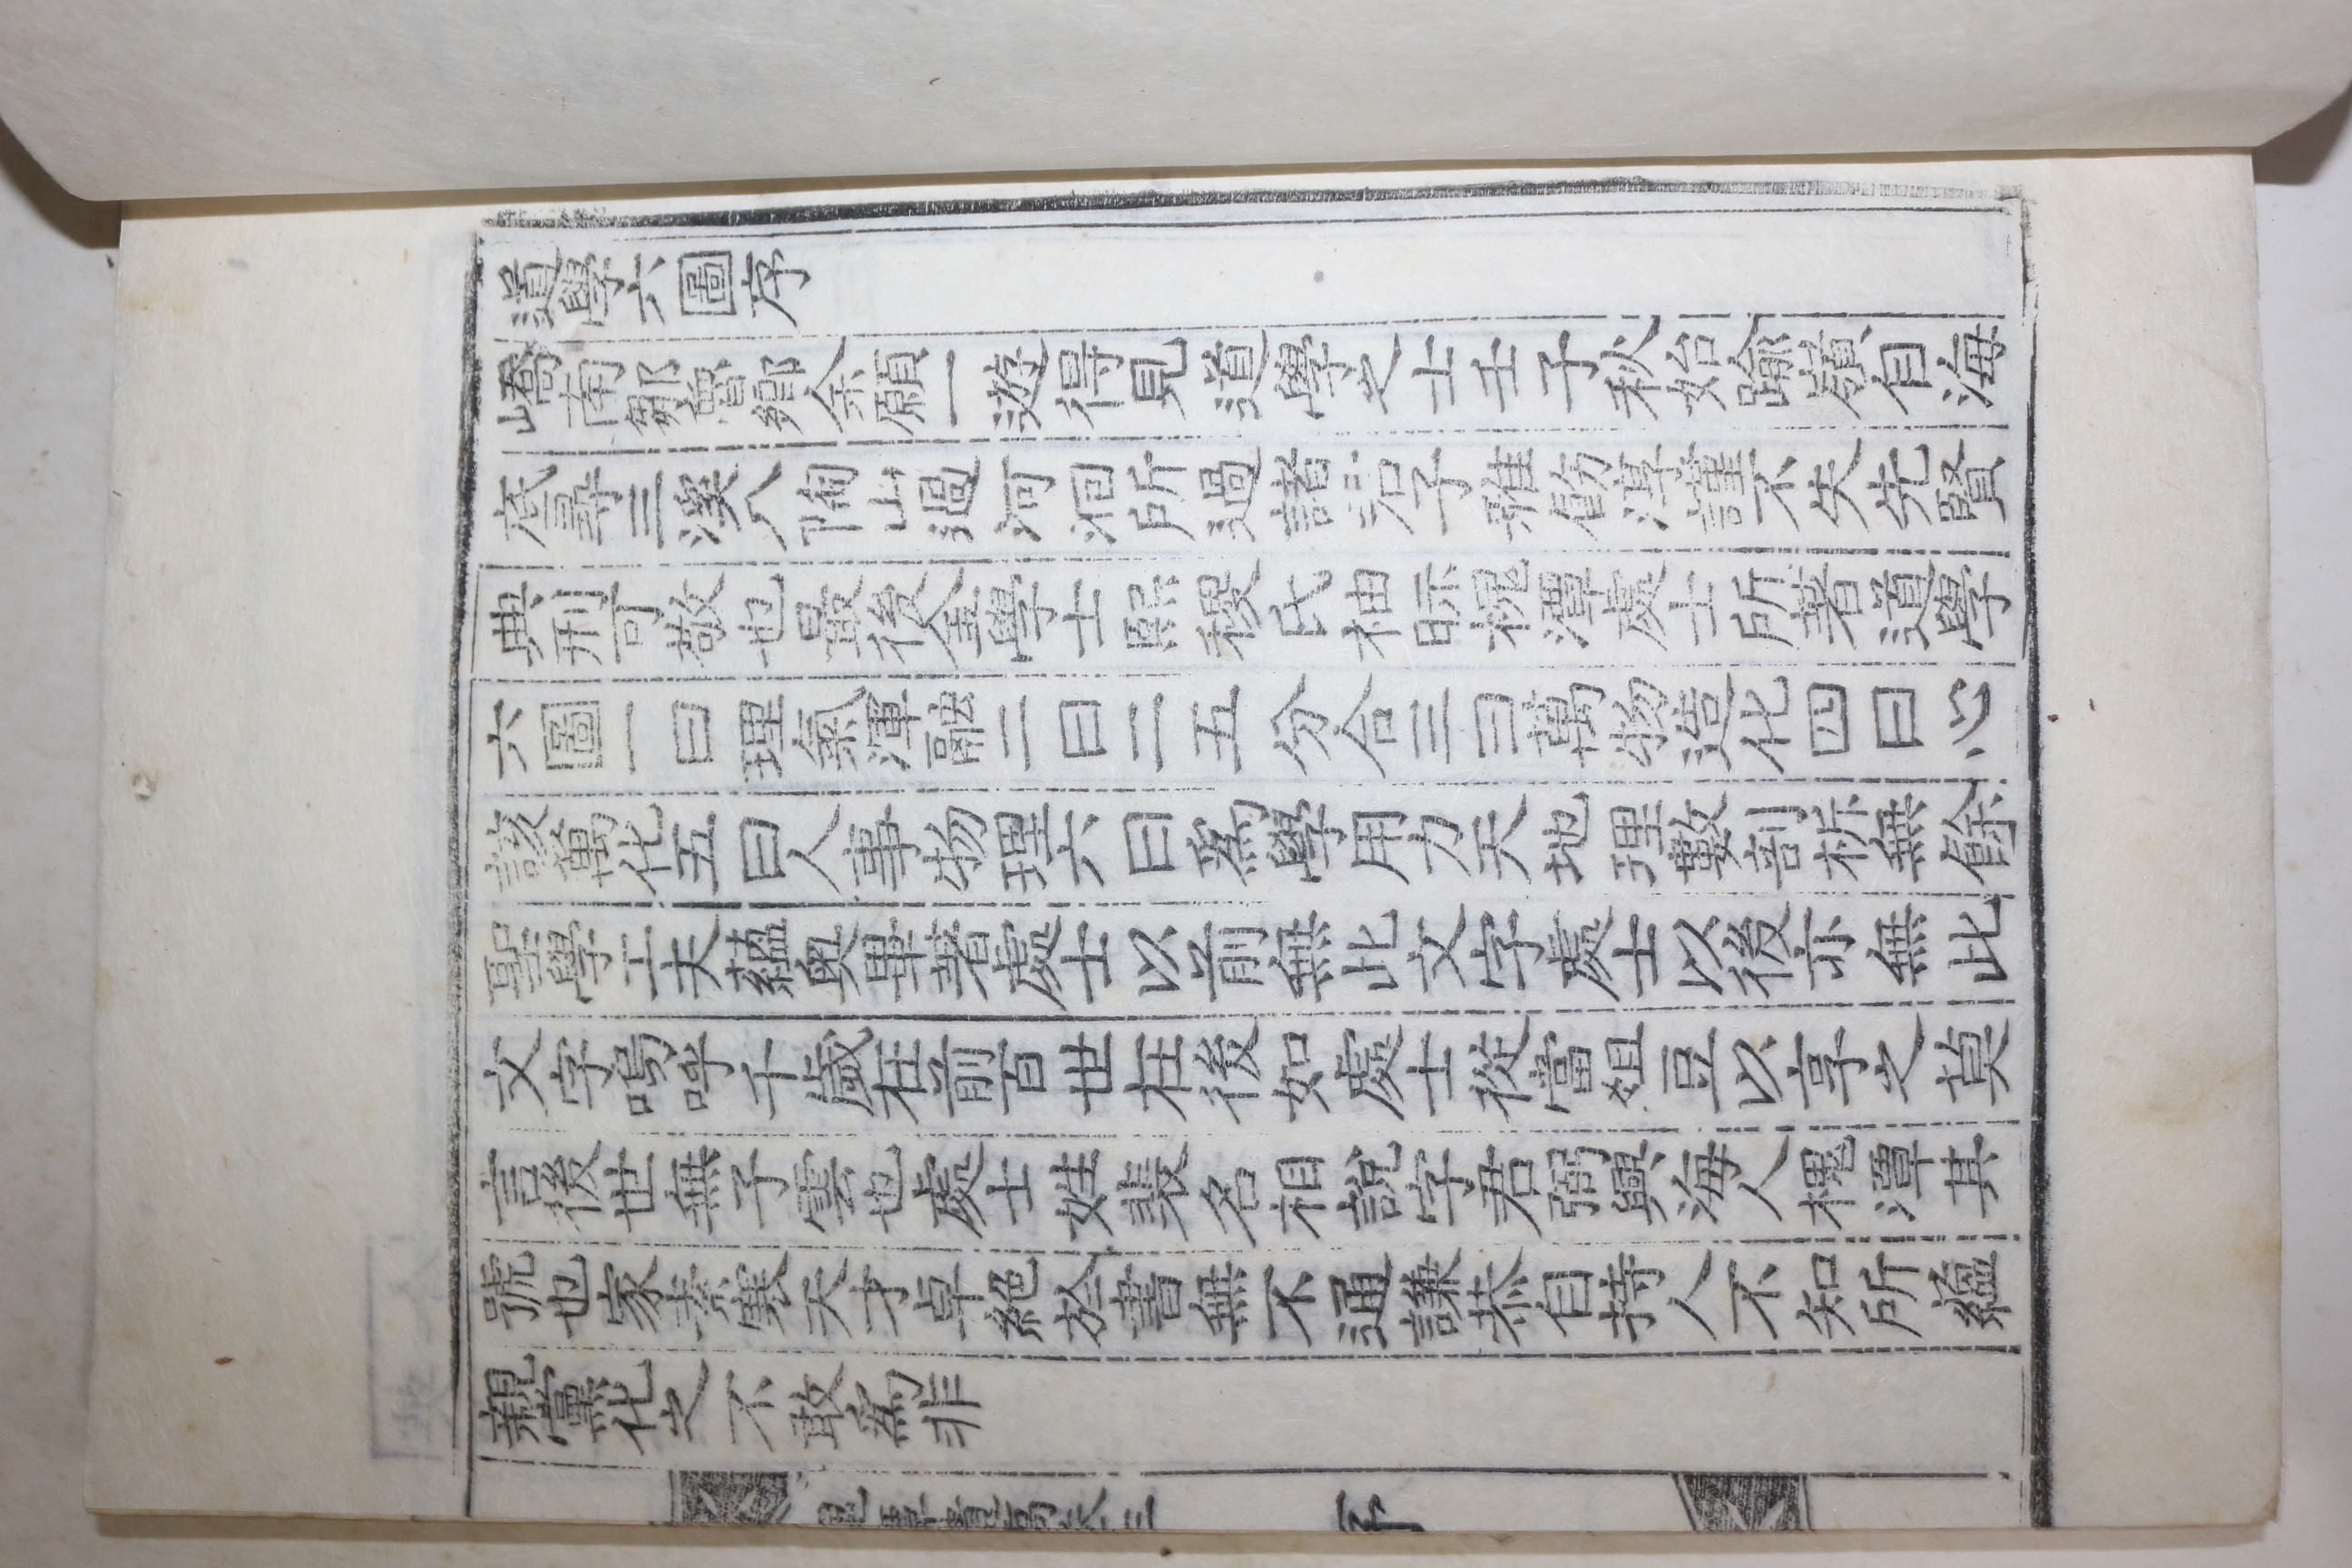 道學六圖序
嶠南鄒魯鄕余願一遊得見道學之士壬子秋始踰嶺自海
底尋三溪入陶山過河洄所過諸君子雅飭淳謹不失先賢
典刑可敬也最後金學士熙稷氏袖眎槐潭處士所著道學
六圖一曰理氣渾融二曰二五分合三曰萬物造化四曰心
該萬化五曰人事物理六曰爲學用力天地理數剖柝無餘
聖學工夫蘊奧畢著處士以前無此文字處士以後亦無此
文字嗚呼千歲在前百世在後如處士從當俎豆以享之莫
言後世無子雲也處士姓裴名相說字君弼興海人槐潭其
號也家素寒天才卓絶於書無不通謙恭自持人不知所蘊
親黨化之不敢爲非
槐潭遺稿卷三
序